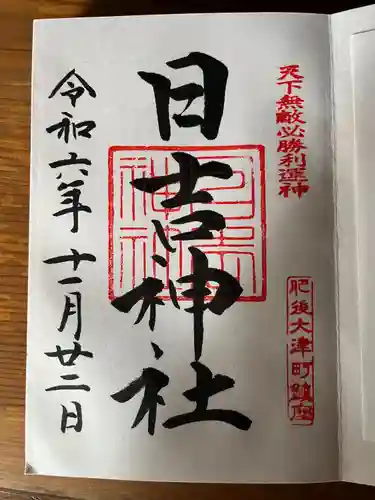 天下無敵必勝利運神
肥後大津町鎮座
日吉神社
日吉神社
令和六年十一月廿三日